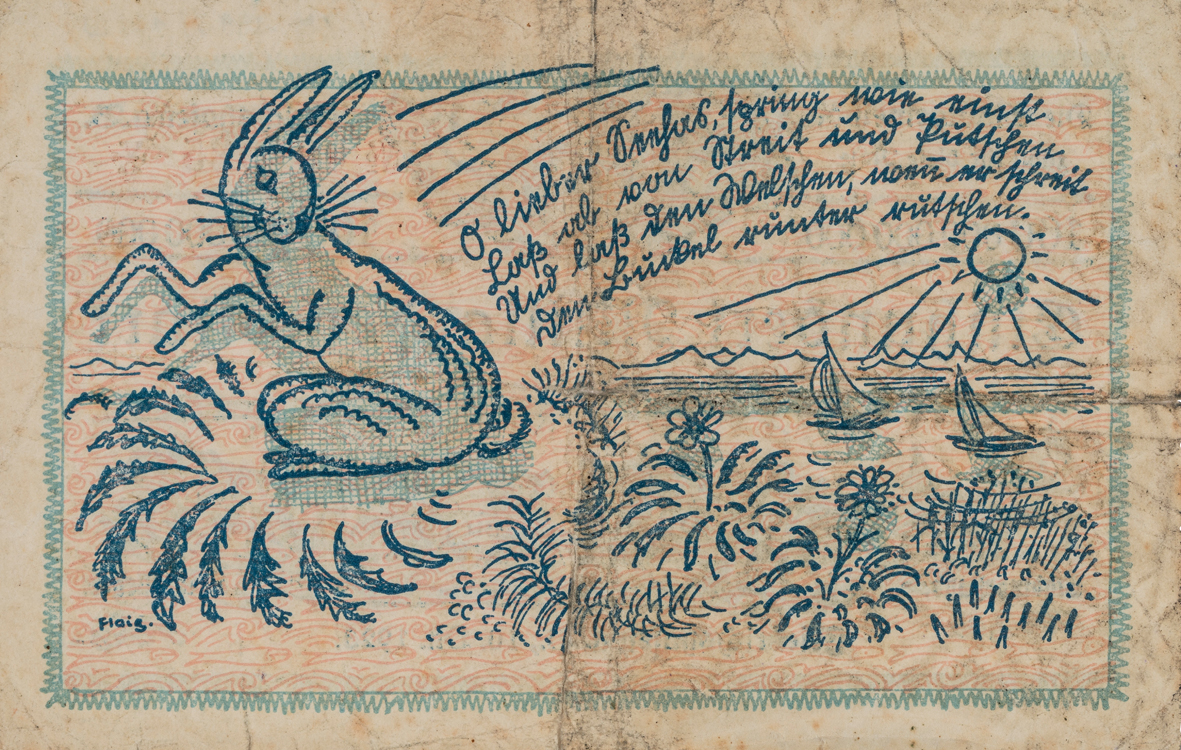 O lieber Seehas, spring wie einst
Laß ab von Streit und Putschen
Und laß den Welschen, weñ er schreit
Den Buckel runter rutschen.
Flaig.